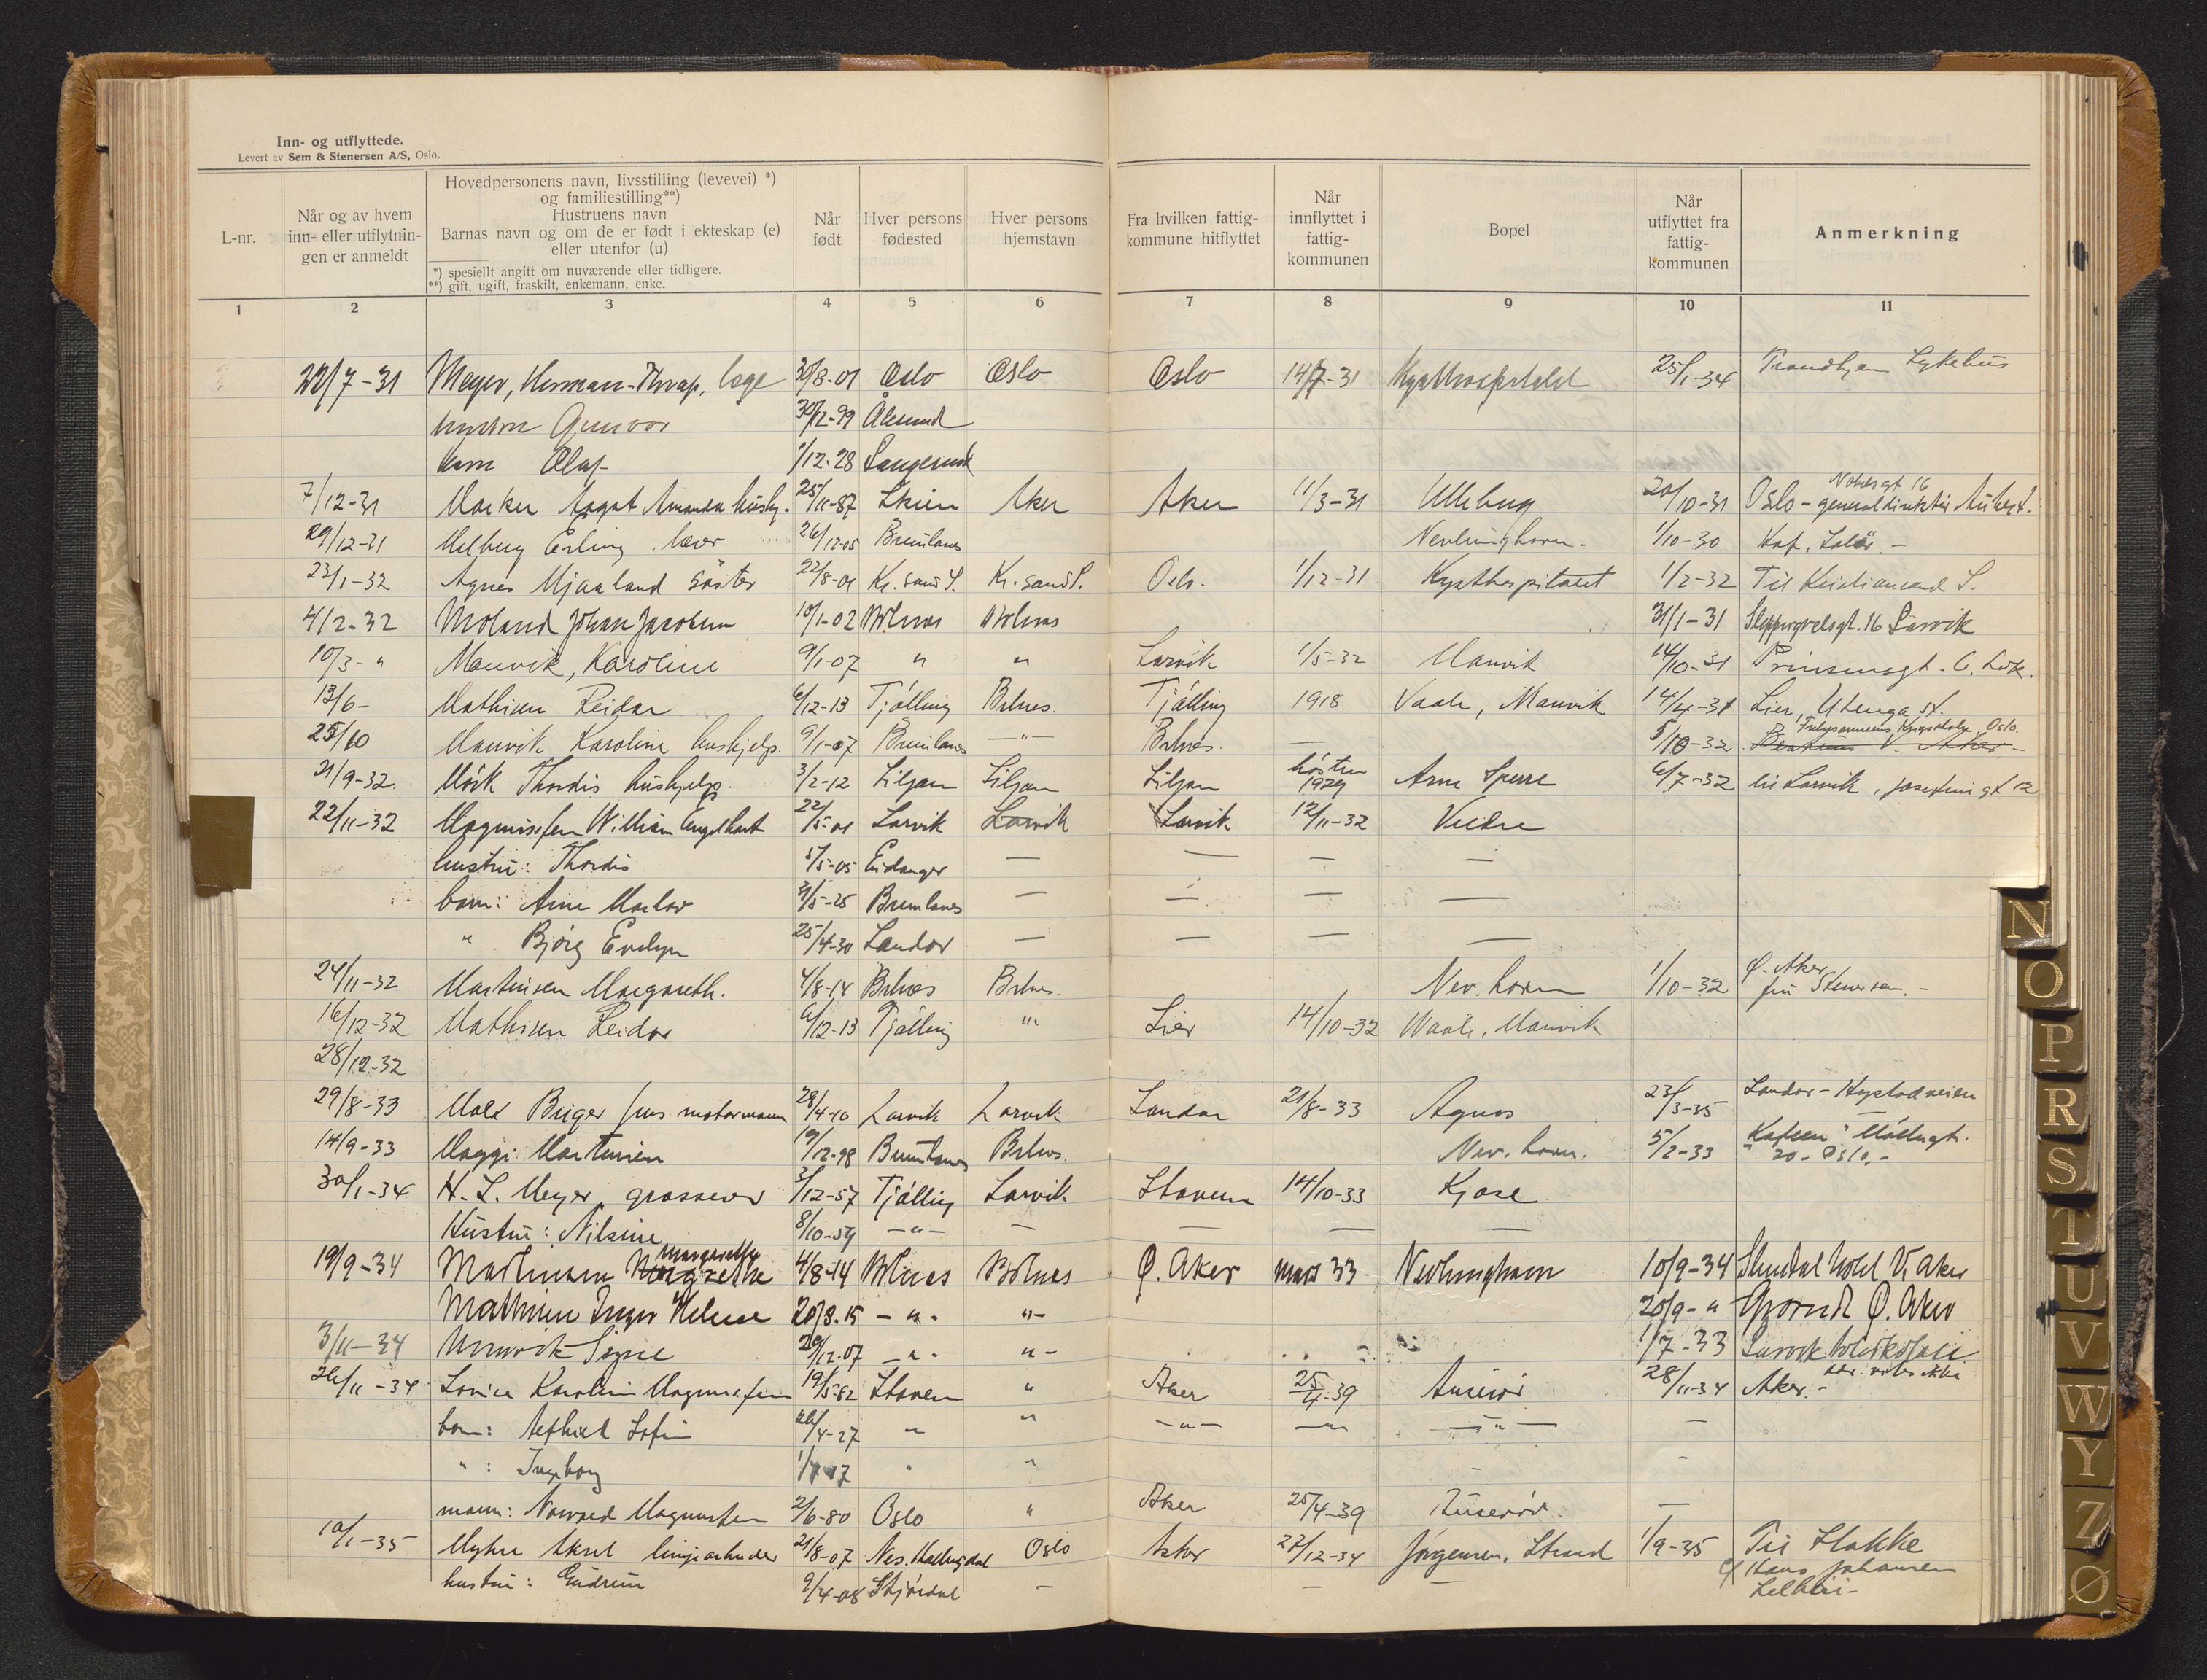 Inn- og utflyttede.
Levert av Sem & Stenersen A/S, Oslo.
L-nr.
Når og av hvem inn- eller utflytnin- gen er anmeldt
Hovedpersonens navn, livsstilling (levevei) *)
og familiestilling**)
Hustruens navn
Barnas navn og om de er født i ekteskap (e)
eller utenfor (u)
*) spesiellt angitt om nuværende eller tidligere.
**) gift, ugift, fraskilt, enkemann, enke.
Når født
Hver persons fødested
Hver persons hjemstavn
Fra hvilken fattig- kommune hitflyttet
Når innflyttet i fattig- kommunen
Bopel
Når utflyttet fra fattig- kommunen
Anmerkning
1 2 3 4 5 6 7 8 9 10 11
22/7-31 Meyer, Herman Thrap, læge 30/8-01 Oslo Oslo Oslo 14/7-31 Kysthospitalet 25/1-34 Trondhjem Sykehus
hustru Gunvor 30/12-99 Ålesund
barn Olaf 1/12-28 Langesund
7/12-31 Aagot Amanda 25/11-87 Skien Aker Aker 11/3-31 Ulleberg 20/10-31 Oslo - generaldirektör Aubert.
29/12-31 Melberg Erling 26/12-05 Brunlanes Nevlunghavn. 1/10-30
23/1-32 Agnes Mjaaland söster 22/8-01 Kr. sand S. Kr. sand S. Oslo. 1/12-31 Kysthospitalet 1/2-32 Til Kristiansand S.
4/2-32 Moland Johan Jacobsen 10/1-02 Brlnes Brlnes 31/1-31 16 Larvik
10/3- " Manvik, Karoline 9/1-07 " " Larvik 1/5-32 Manvik 14/10-31 Prinsensgt. 6. Lvk.
13/6- Mathisen Reidar 6/12-13 Tjölling Brlnes. Tjölling 1918 Vaale, Manvik 14/4-31 Lier, Utenga st.
25/10 Manvik Karoline hushjelp. 9/1-07 Brunlanes -"- Brlnes. — 5/10-32 Frelsesarmeens Krigsskole, Oslo. V. Aker
21/9-32. Mörk Thordis hushjelp. 3/2-12 Siljan Siljan Siljan hösten 1929 Arne Sperre 6/7-32 til Larvik, Josefinegt 12
22/11-32 Magnussen William Engelhart 22/5-01 Larvik Larvik Larvik 12/11-32 Veldre
hustru: Thordis 5/5-05 Eidanger — — — —
barn: Arne 31/5-25 Brunlanes — — — —
" Bjørg Evelyn 25/4-30 Sandar — — — —
24/11-32 Martinsen Margareth. 4/8-14 Brlnes Brlnes. Nev. havn 1/10-32 Ø. Aker fru Stenersen.-
16/12-32 Mathisen Reidar 6/12-13 Tjölling "" Lier 14/10-32 Waale, Manvik
28/12-32
29/8-33 Birger motormann 28/4-10 Larvik Larvik Sandar 21/8-33 Agnes 23/3-35 Sandar - Kystadveien
14/9-33 Maggi Martinsen 19/12-98 Brunlanes Brlnes. Nev. havn. 5/2-33 "Kafeen" Möllergt. 20 - Oslo.-
30/1-34 H. L. Meyer grosserer 3/12-57 Tjölling Larvik Stavern 14/10-33 Kjose
Hustru: Nilsine 8/10-59 -"- — — — —
19/9-34 Martinsen Margarethe 4/8-14 Brlnes Brlnes Ø. Aker mars 33 Nevlunghavn 10/9-34 Hotel V. Aker
Mathisen Inger Helene 20/8.15 -"- "- 20/9- " Grorud Ø. Aker
3/11-34 Manvik Signe 29/12.07 -"- "- 1/7-33 Larvik
26/11-34 Lovise Karoline Magnussen 19/5-82 Stavern " Aker 25/4-39 Auserød 28/11-34 Aker.-
barn: Sofie 26/4-27 " " -"- -"- -"- —
" : Ingeborg "
mann: Magnussen 2/6-80 Oslo " Aker 25/4-39 Auserød. —
10/1-35 Myhre Aksel linjearbeider 21/8-07 Nes. Hallingdal Oslo Asker 27/12-34 Jørgensen, Strand 1/9-35 Til Stokke
hustru: Gudrun 9/4-08 Stjørdal — — — Hans Johansen
N
O
P
R
S
T
U
V
W
Y
Z
Ø